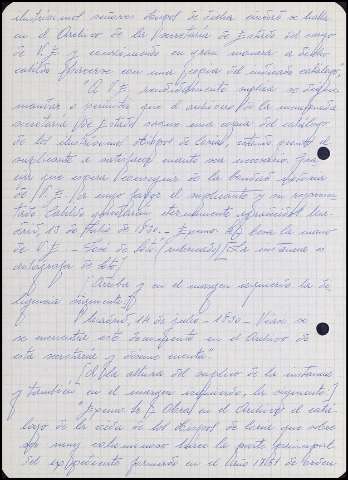 ilustrísimos señores obispos de dicha ciudad se halla
en el Archivo de la Secretaría de Estado del cargo
de V.E. y conviniendo en gran manera a dicho
cabildo hacerse con una copia del indicado catálogo,
"A V.E. rendidamente suplica se digne
mandar o permitir que el archivero de la mencionada
secretaría de Estado saque una copia del catálogo
de los ilustrísimos obispos de Coria, estando pronto el
suplicante a satisfacer cuanto sea necesario. Gra
cia que espera conseguir de la bondad
de V.E. a cuyo favor el suplicante y su
Cabildo quedarán eternamente agradecidos. Ma-
drid, 13 de Julio de 1830.- Excmo. Sr. besa la mano
de V.E.- José de (rubricado) [La instancia es
autógrafa de]
[Arriba y en el margen izquierdo la di-
ligencia siguiente:]
"Madrid, 14 de julio - 1830.- Véase si
se encuentra este documento en el Archivo de
esta secretaría y dése cuenta".
[A la altura del suplico de la instancia
y también en el margen izquierdo, lo siguiente:]
"Excmo. Sr.: Obra en el Archivo el catá-
logo de la vida de los obispos de Coria que sobre
ser muy voluminoso hace la parte principal
del expediente formado en el año de orden